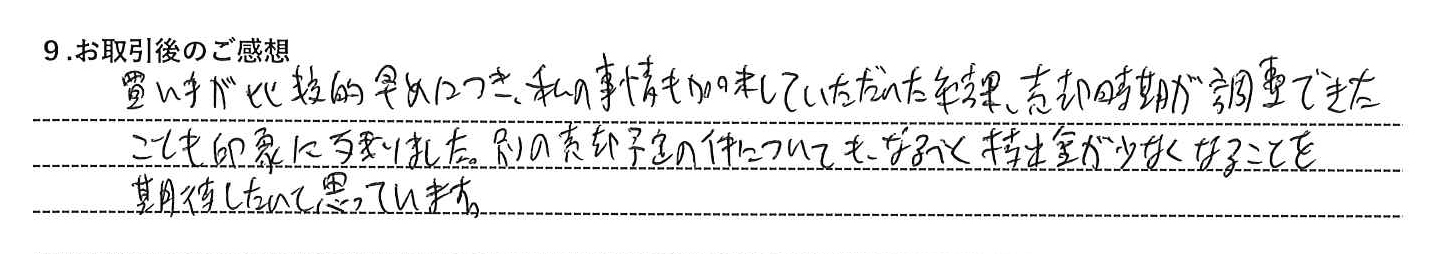 9.お取引後のご感想
買い手が比較的早めにつき、私の事情も加味していただいた結果、売却時期が調整できた
ことも印象に残りました。別の売却予定の件についても、なるべく持出金が少なくなることを
期待したいと思っています。